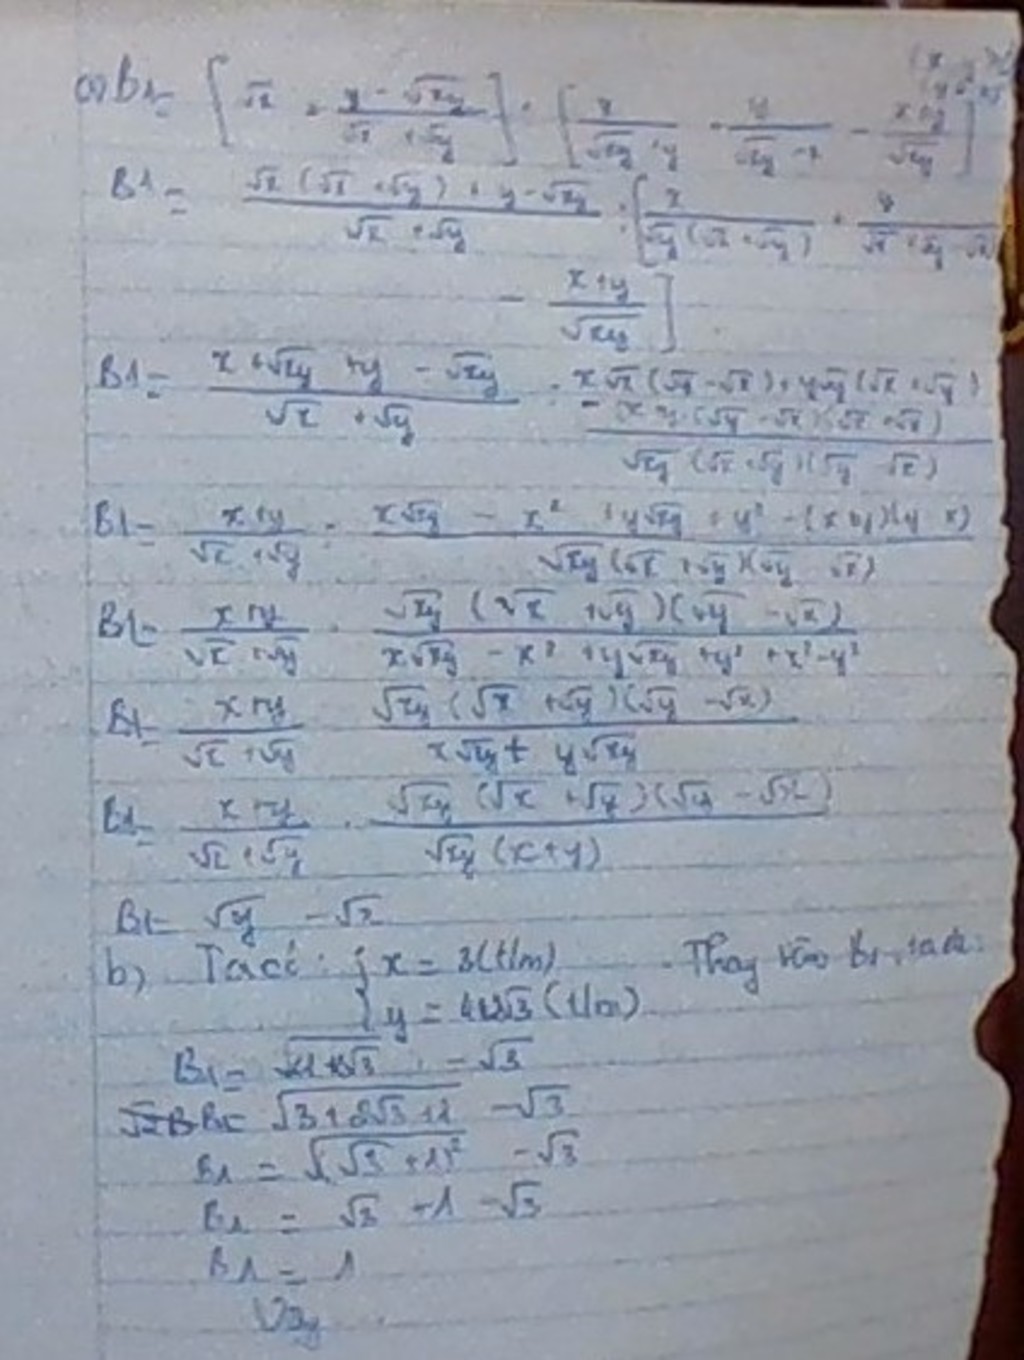 a) B1 = [√x + (y - √xy)/(√x + √y)] : [x/(√xy + y) + y/(√xy - x) - (x+y)/√xy]
B1 = (√x(√x + √y) + y - √xy)/(√x + √y) : [x/(√y(√x + √y)) +
- (x+y)/√xy]
B1 = (x + √xy + y - √xy)/(√x + √y) : (x√x(√y - √x) + y√y(√x + √y)
- (x+y)(√y - √x)(√x + √y))/(√xy(√x + √y)(√y - √x))
B1 = (x+y)/(√x + √y) : (x√xy - x² + y√xy + y² - (x+y)(y - x))/(√xy(√x + √y)(√y - √x))
B1 = (x+y)/(√x + √y) . (√xy(√x + √y)(√y - √x))/(x√xy - x² + y√xy + y² + x² - y²)
B1 = (x+y)/(√x + √y) . (√xy(√x + √y)(√y - √x))/(x√xy + y√xy)
B1 = (x+y)/(√x + √y) . (√xy(√x + √y)(√y - √x))/(√xy(x+y))
B1 = √y - √x
b) Ta có: { x = 3(t/m) . Thay vào B1, ta được:
{ y = 4+2√3 (t/m)
B1 = √(4+2√3) - √3
B1 = √(3+2√3+1) - √3
B1 = √(√3+1)² - √3
B1 = √3 + 1 - √3
B1 = 1
Vậy